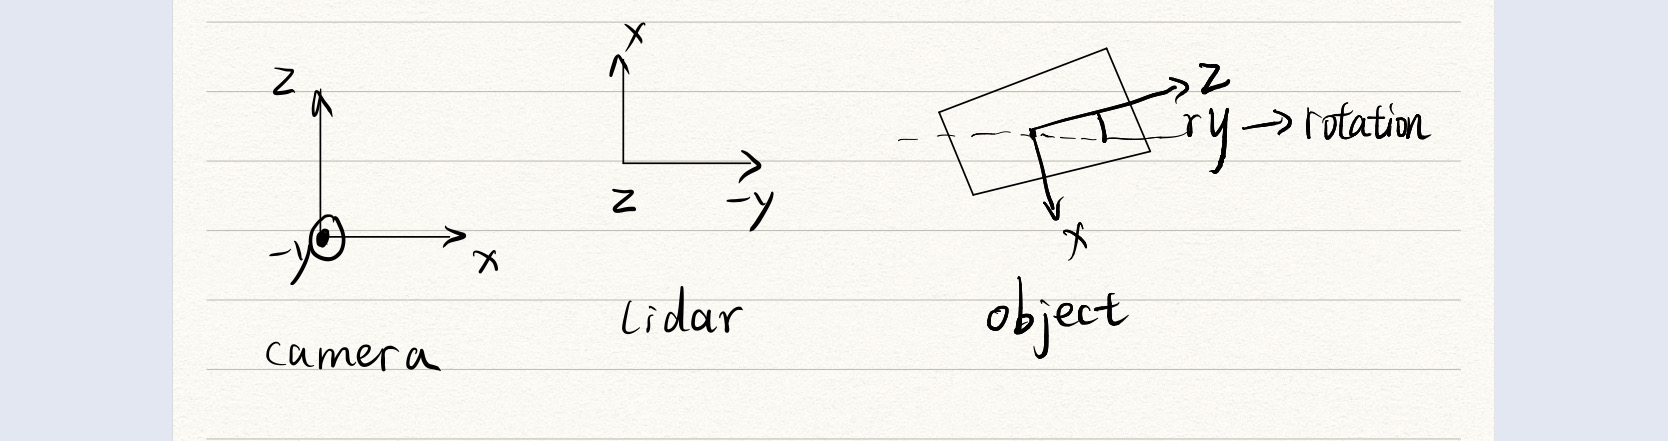 z
-y
x
camera
x
z
-y
lidar
z
ry → rotation
x
object